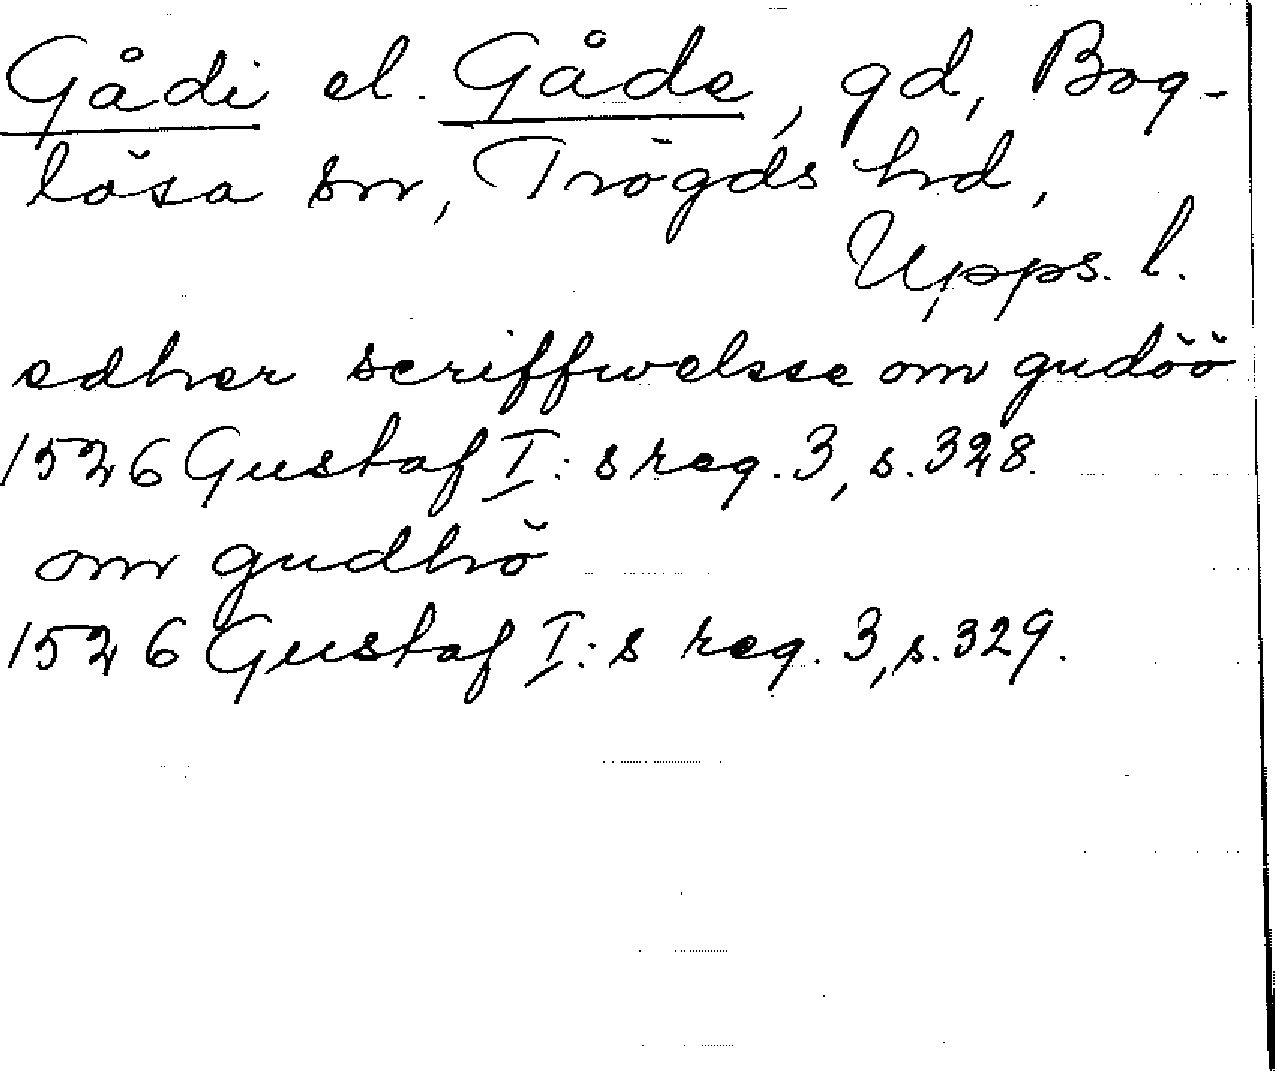 Gådi el. Gåde, gd, Bog-
lösa sn, Trögds hd,
Upps. l.
edher scriffwelsse om gudöö
1526 Gustaf I: s reg. 3, s. 328.
om gudhö
1526 Gustaf I: s reg. 3, s. 329.